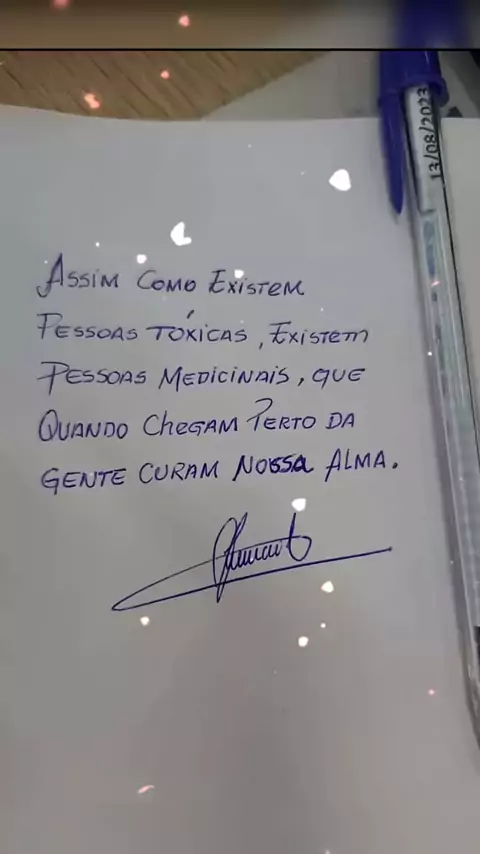 13/08/2023
Assim como existem
pessoas tóxicas, existem
pessoas medicinais, que
quando chegam perto da
gente curam nossa alma.